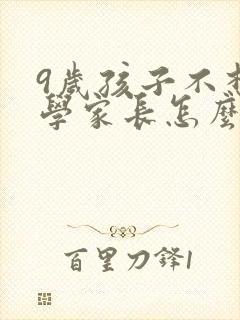 9歲孩子不
學家長怎麼
百里刀鋒1